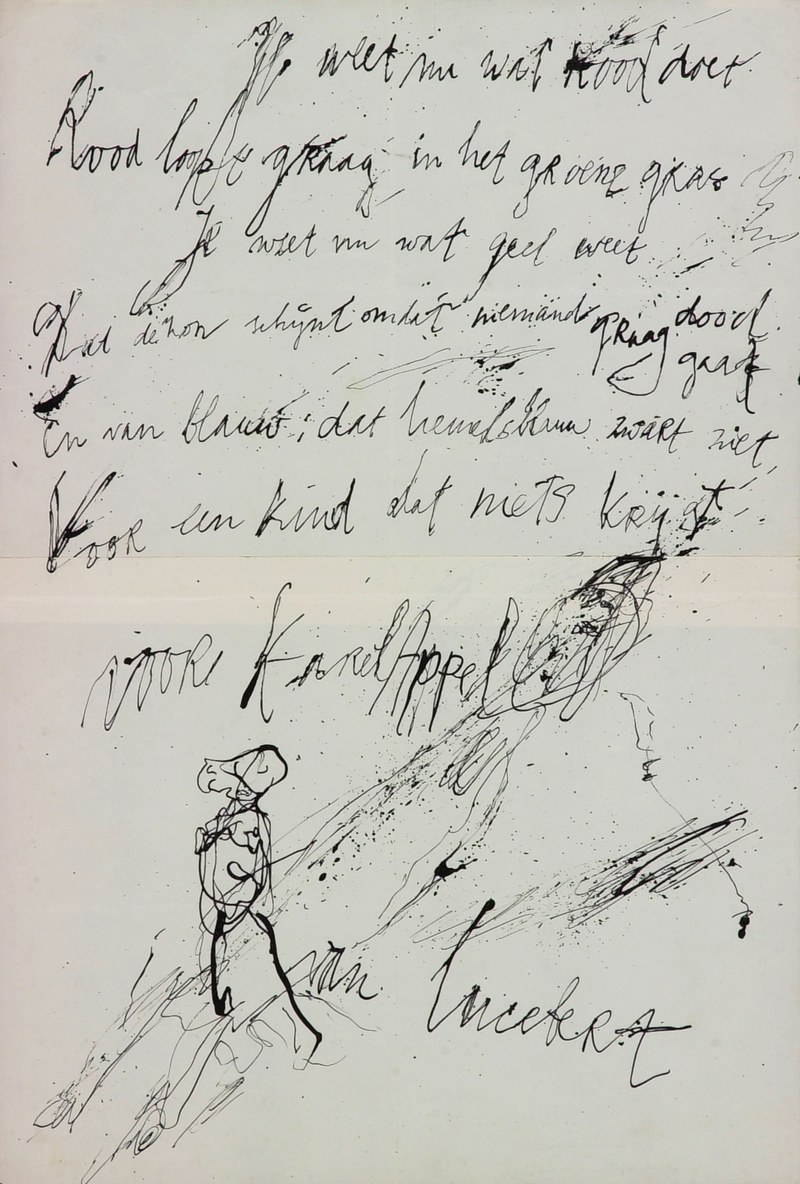 Je weet nu wat Rood doet
Rood loopt graag in het groene gras
Je weet nu wat geel weet
Dat de zon schijnt omdat niemand graag dood
gaat
En van blauw; dat hemelsblauw zwart ziet,
Voor een kind dat niets krijgt
voor Karel Appel
van Lucebert